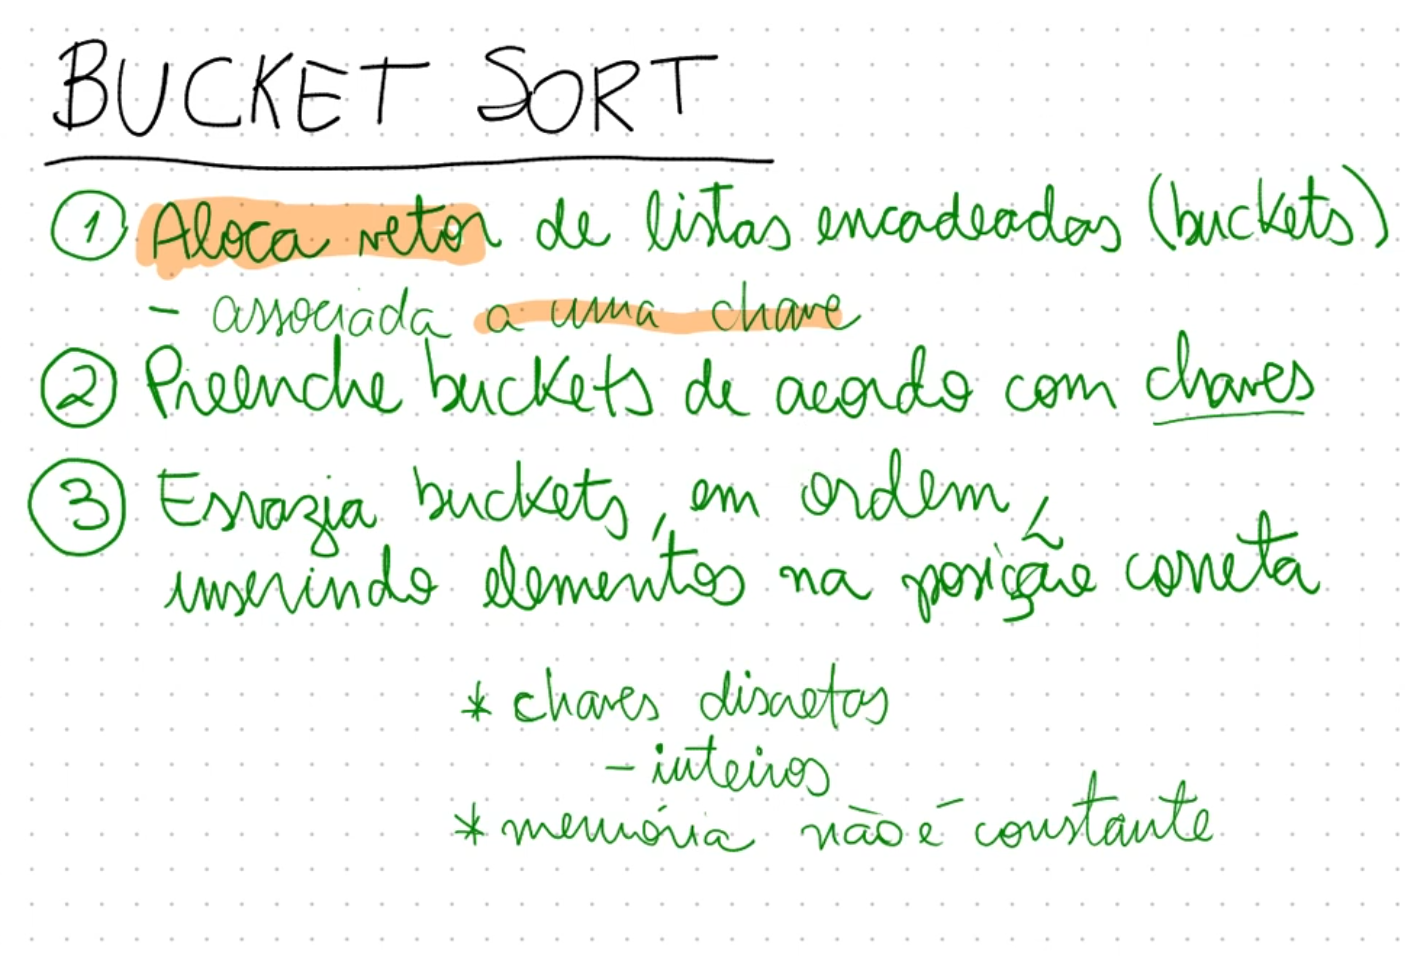 BUCKET SORT
① Aloca vetor de listas encadeadas (buckets)
- associada a uma chave
② Preenche buckets de acordo com chaves
③ Esvazia buckets, em ordem,
inserindo elementos na posição correta
* chaves discretas
- inteiros
* memória não é constante